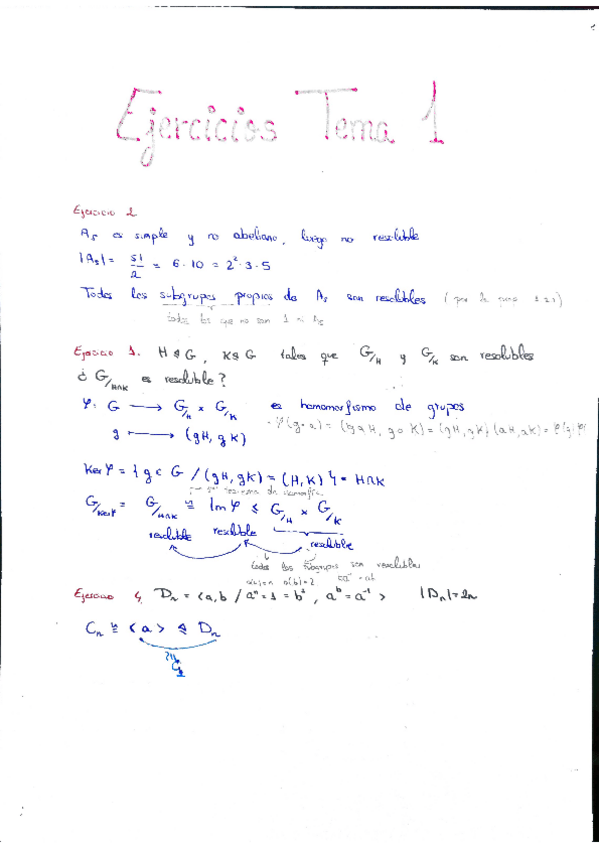 Ejercicios Tema 1
Ejercicio 2
A₅ es simple y no abeliano, luego no resoluble
|A₅| = 5!/2 = 6·10 = 2²·3·5
Todos los subgrupos propios de A₅ son resolubles
todos los que no son 1 ni A₅
Ejercicio 1. H ⊴ G, K ⊴ G tales que G/H y G/K son resolubles
¿ G/H∩K es resoluble?
φ: G → G/H × G/K es homomorfismo de grupos
g ↦ (gH, gK)
Ker φ = { g ∈ G / (gH, gK) = (H, K) } = H∩K
G/Ker φ = G/H∩K ≅ Im φ ≤ G/H × G/K
resoluble resoluble resoluble
todos los subgrupos son resolubles
o(a)=n o(b)=2
Ejercicio 4, Dₙ = <a, b / aⁿ = 1 = b², aᵇ = a⁻¹> |Dₙ| = 2n
Cₙ ≅ <a> ⊴ Dₙ
C₂